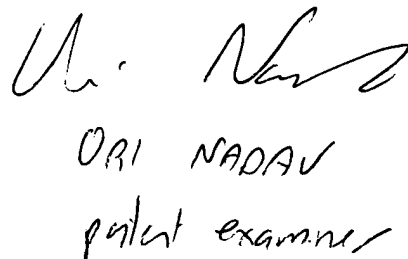 Uri Nadav
ORI NADAV
patent examiner